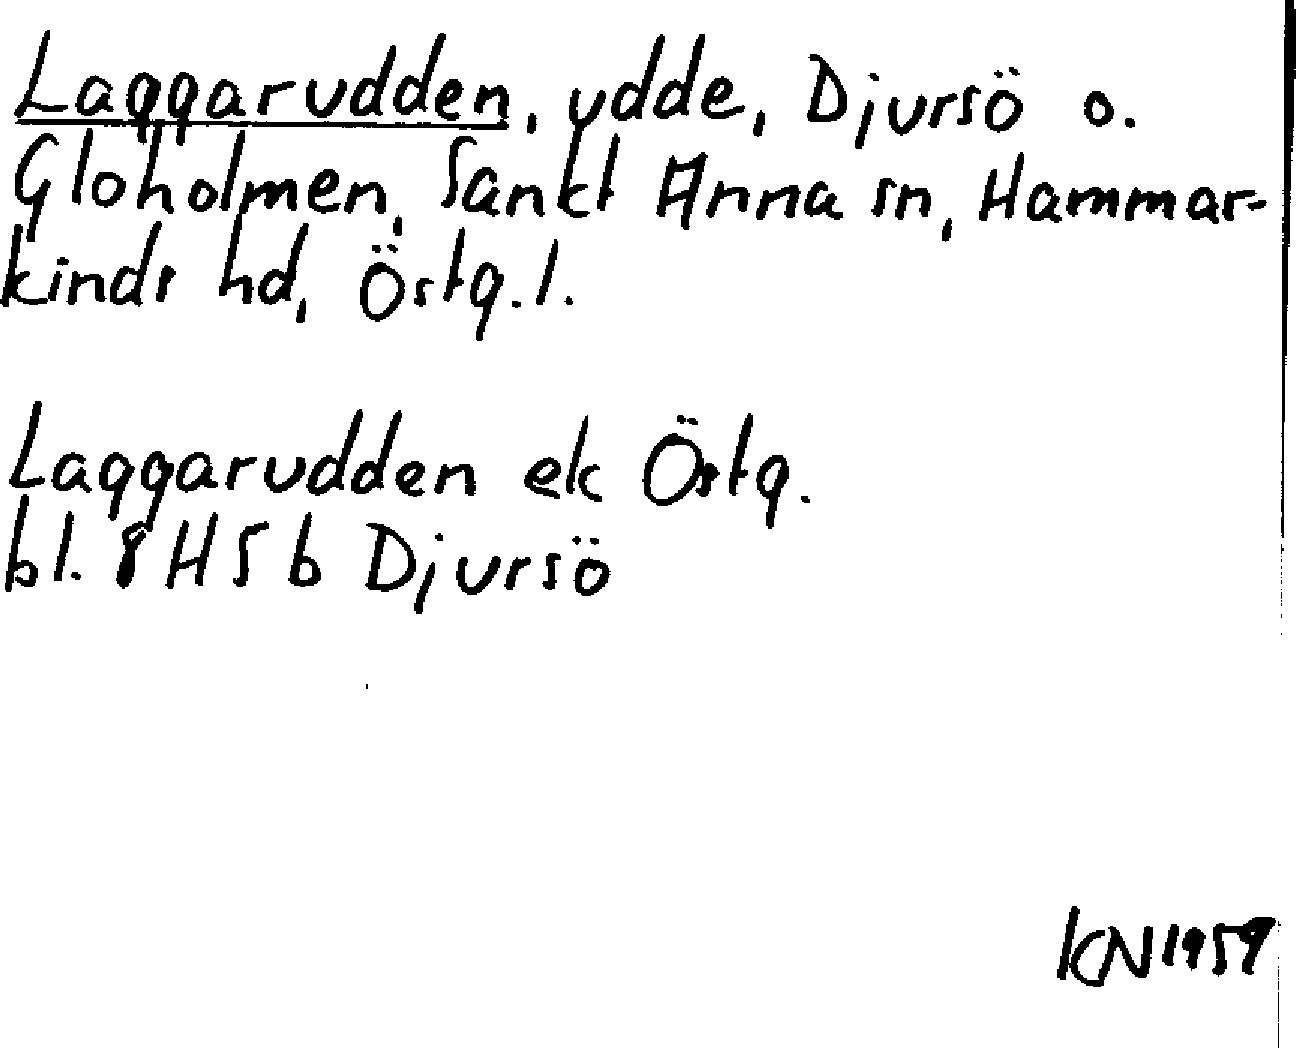 Laggarudden, udde, Djursö o.
Gloholmen, Sankt Anna sn, Hammar-
kinds hd, Östg. l.
Laggarudden ek Östg.
bl. 8H5b Djursö
KN1959